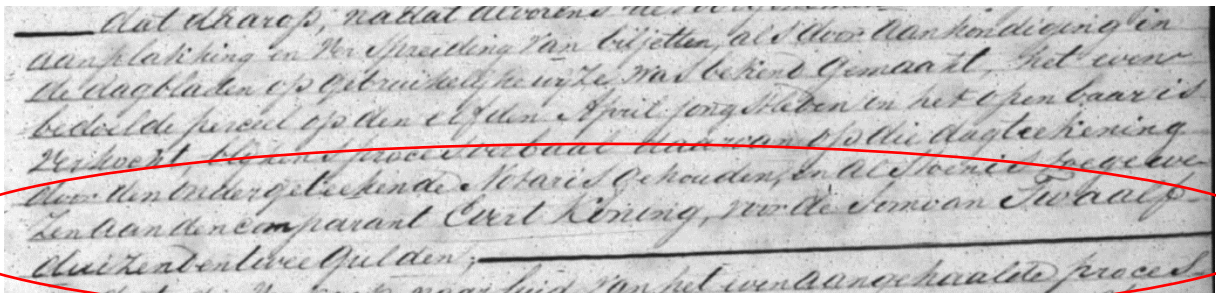 dat daarop, nadat alvorens
aanplakking en verspreiding van biljetten, als door aankondiging in
de dagbladen op gebruikelijke wijze was bekend gemaakt, het even
bedoelde perceel op den elfden April jongstleden in het openbaar is
verkocht, blijkens procesverbaal daarvan op die dagteekening
door den ondergeteekende Notaris gehouden, en als toen is toegewe
zen aan den comparant Evert Koning, voor de som van Twaalf
duizend en twee Gulden;
luid van het even aangehaalde proces-